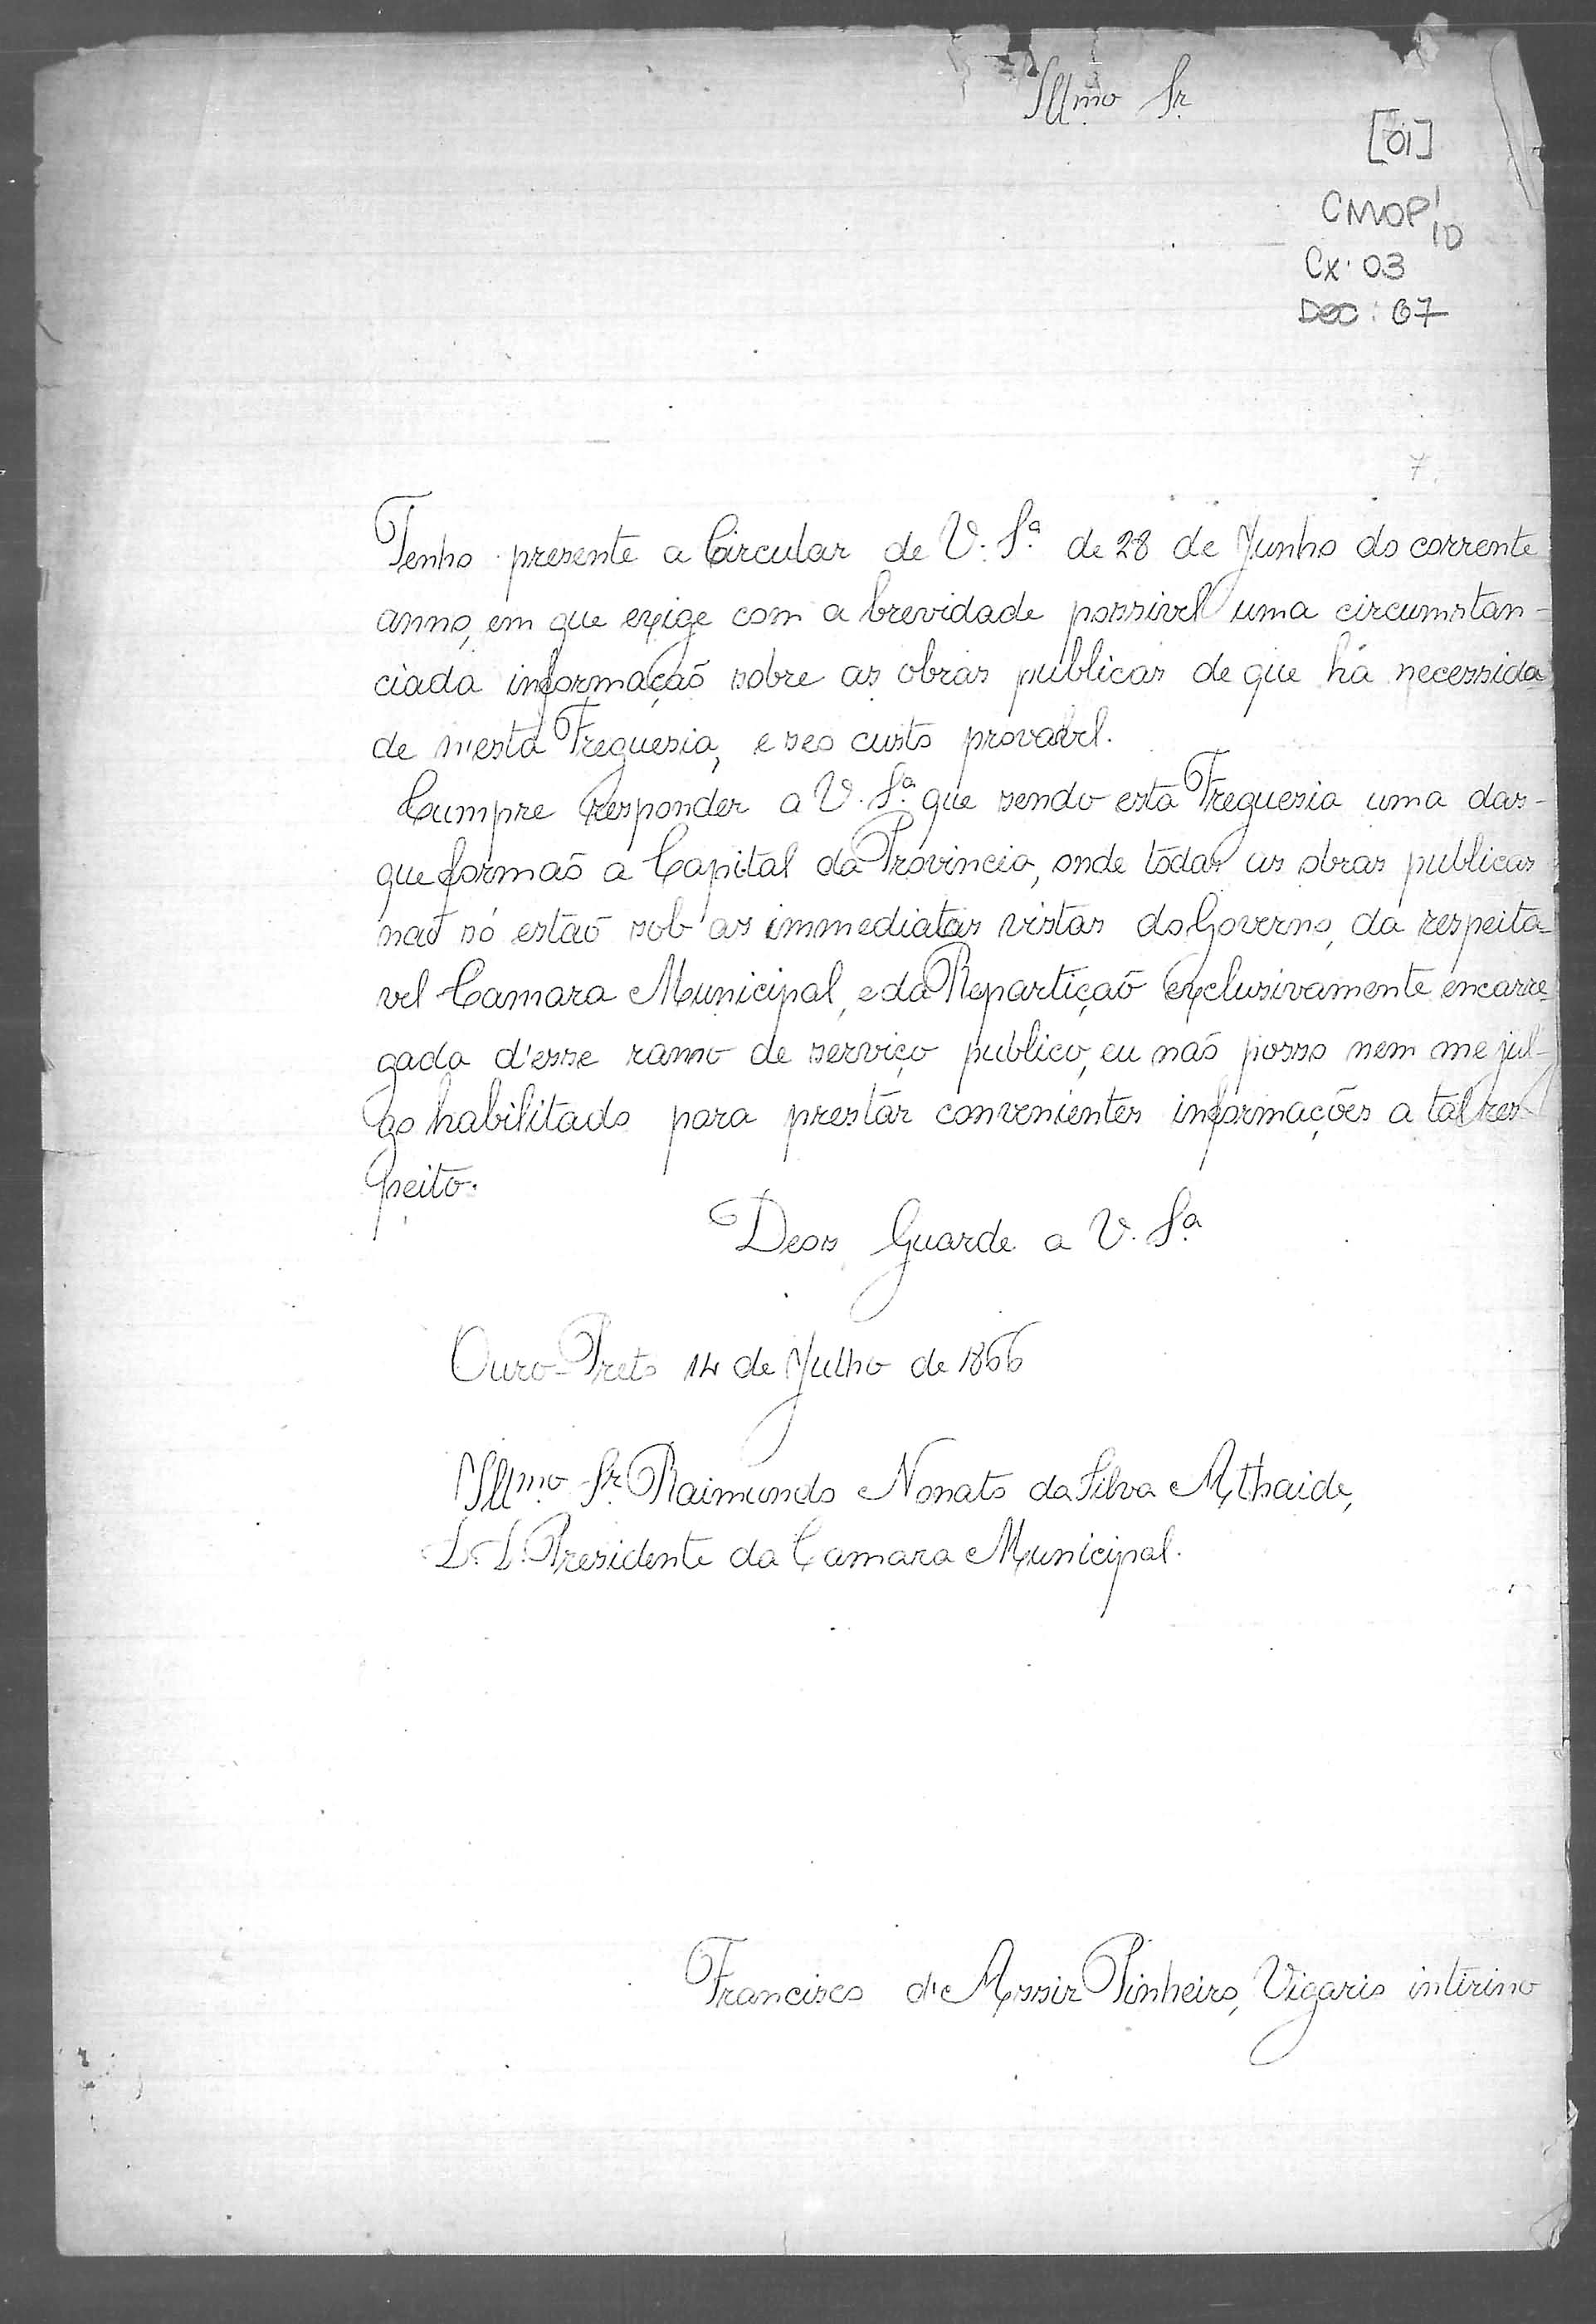 Illmo Sr
[01]
CMOP1
10
Cx: 03
Doc: 07
7.
Tenho presente a Circular de V. Sª de 28 de Junho do corrente
anno, em que exige com a brevidade possivel uma circumstan-
ciada informação sobre as obras publicas de que há necessida
de n'esta Freguesia, e seo custo provavel.
Cumpre responder a V. Sª que sendo esta Freguesia uma das-
que formaõ a Capital da Provincia, onde todas as obras publicas
naõ só estaõ sob as immediatas vistas do Governo, da respeita-
vel Camara Municipal, e da Repartiçaõ exclusivamente encarre-
gada d'esse ramo de serviço publico, eu naõ posso nem me jul-
go habilitado para prestar convenientes informações a tal res-
peito.
Deos Guarde a V. Sª
Ouro-Preto 14 de Julho de 1866
Illmo Sr Raimundo Nonato da Silva Athaide,
D. D. Presidente da Camara Municipal.
Francisco d'Assis Pinheiro, Vigario intirino